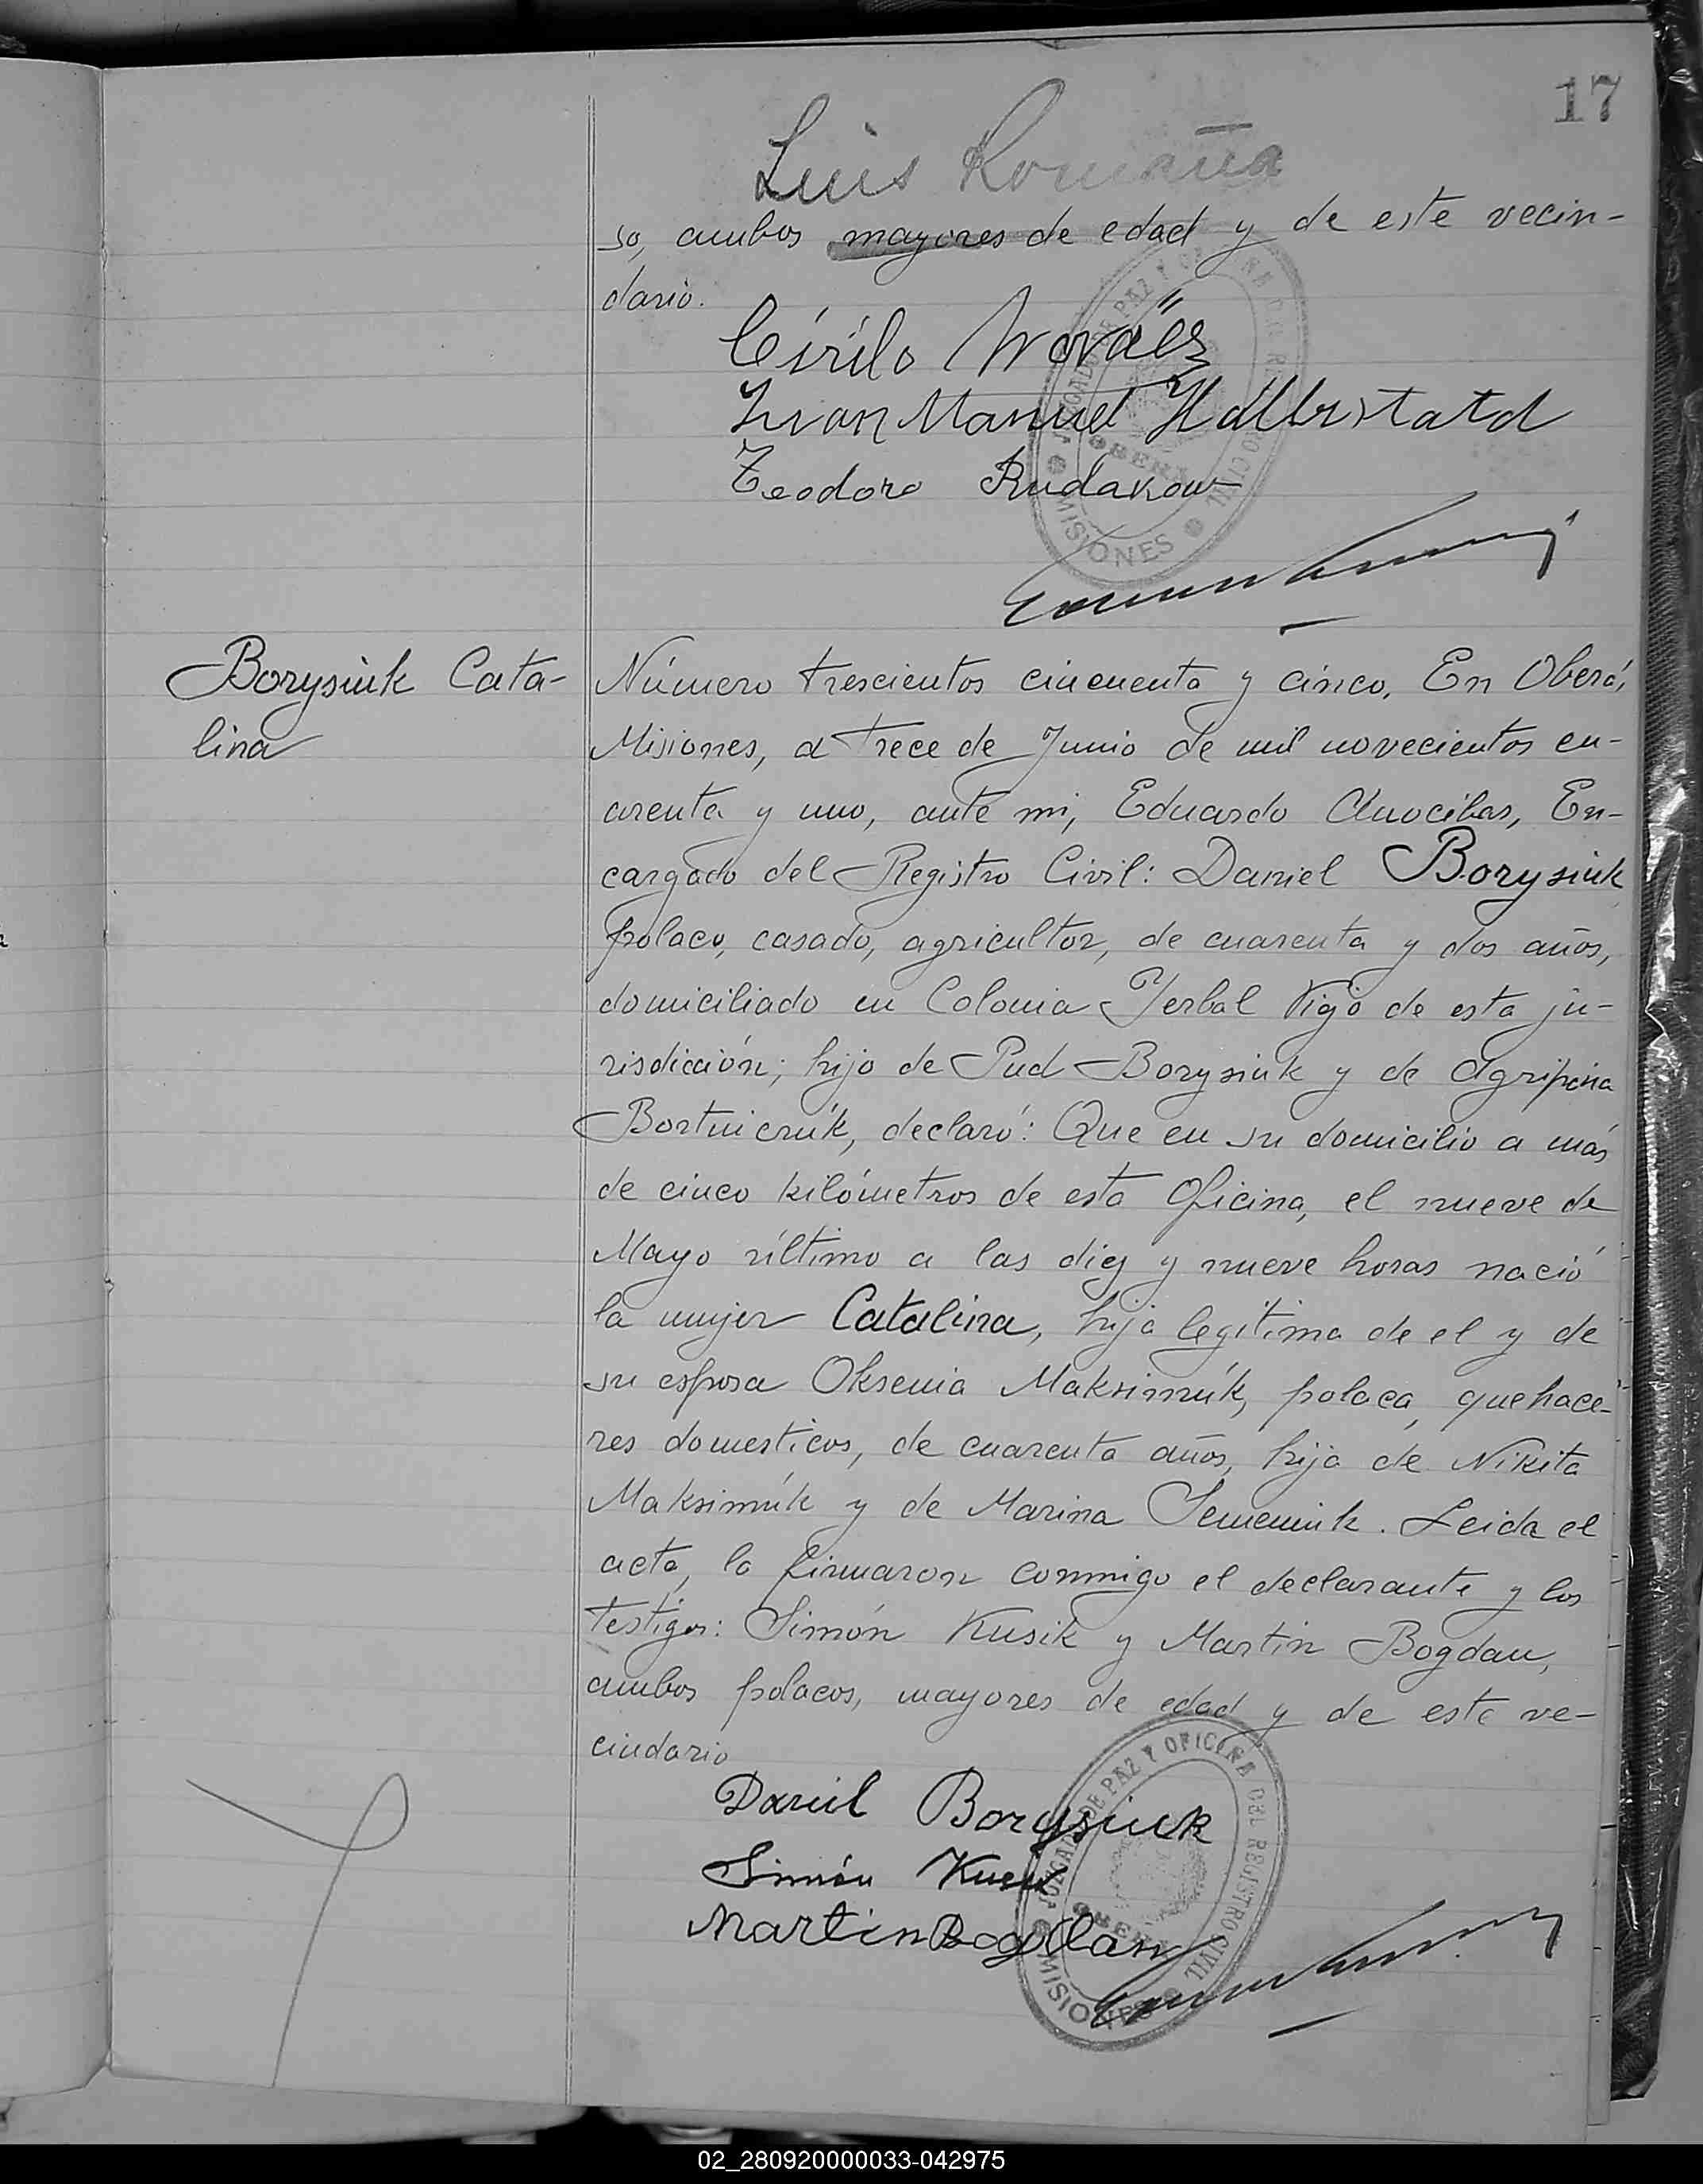 17
Luis Romaña
so, ambos mayores de edad y de este vecin-
dario.
Cirilo Nováes
Juan Manuel Halbrstatd
Teodoro Rudakow
Borysiuk Cata-
lina
Número trescientos cincuenta y cinco. En Oberá,
Misiones, a trece de Junio de mil novecientos cu-
arenta y uno, ante mi, Eduardo Anocibar, En-
cargado del Registro Civil: Daniel Borysiuk
polaco, casado, agricultor, de cuarenta y dos años,
domiciliado en Colonia Yerbal Viejo de esta ju-
risdicción; hijo de Pud Borysiuk y de Agripina
Bortnicruk, declaró: Que en su domicilio a más
de cinco kilómetros de esta Oficina, el nueve de
Mayo último a las diez y nueve horas nació
la mujer Catalina, hija legitima de el y de
su esposa Oksenia Maksimuk, polaca, quehace-
res domesticos, de cuarenta años, hija de Nikita
Maksimúk y de Marina Semeniuk. Leida el
acta, la firmaron conmigo el declarante y los
testigos: Simón Kusik y Martin Bogdan,
ambos polacos, mayores de edad y de este ve-
cindario
Daniil Borysiuk
Simón Kusik
Martin Bogdan
JUZGADO DE PAZ Y OFICINA DEL REGISTRO CIVIL
OBERÁ
MISIONES
02_280920000033-042975